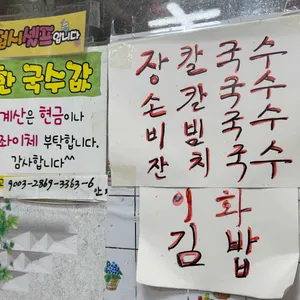 셀프입니다
한 국수값
계산은 현금이나
좌이체 부탁합니다.
감사합니다^^
9003-2869-3363-6
장 칼 국 수
손 칼 국 수
비 빔 국 수
잔 치 국 수
이 화
김 밥